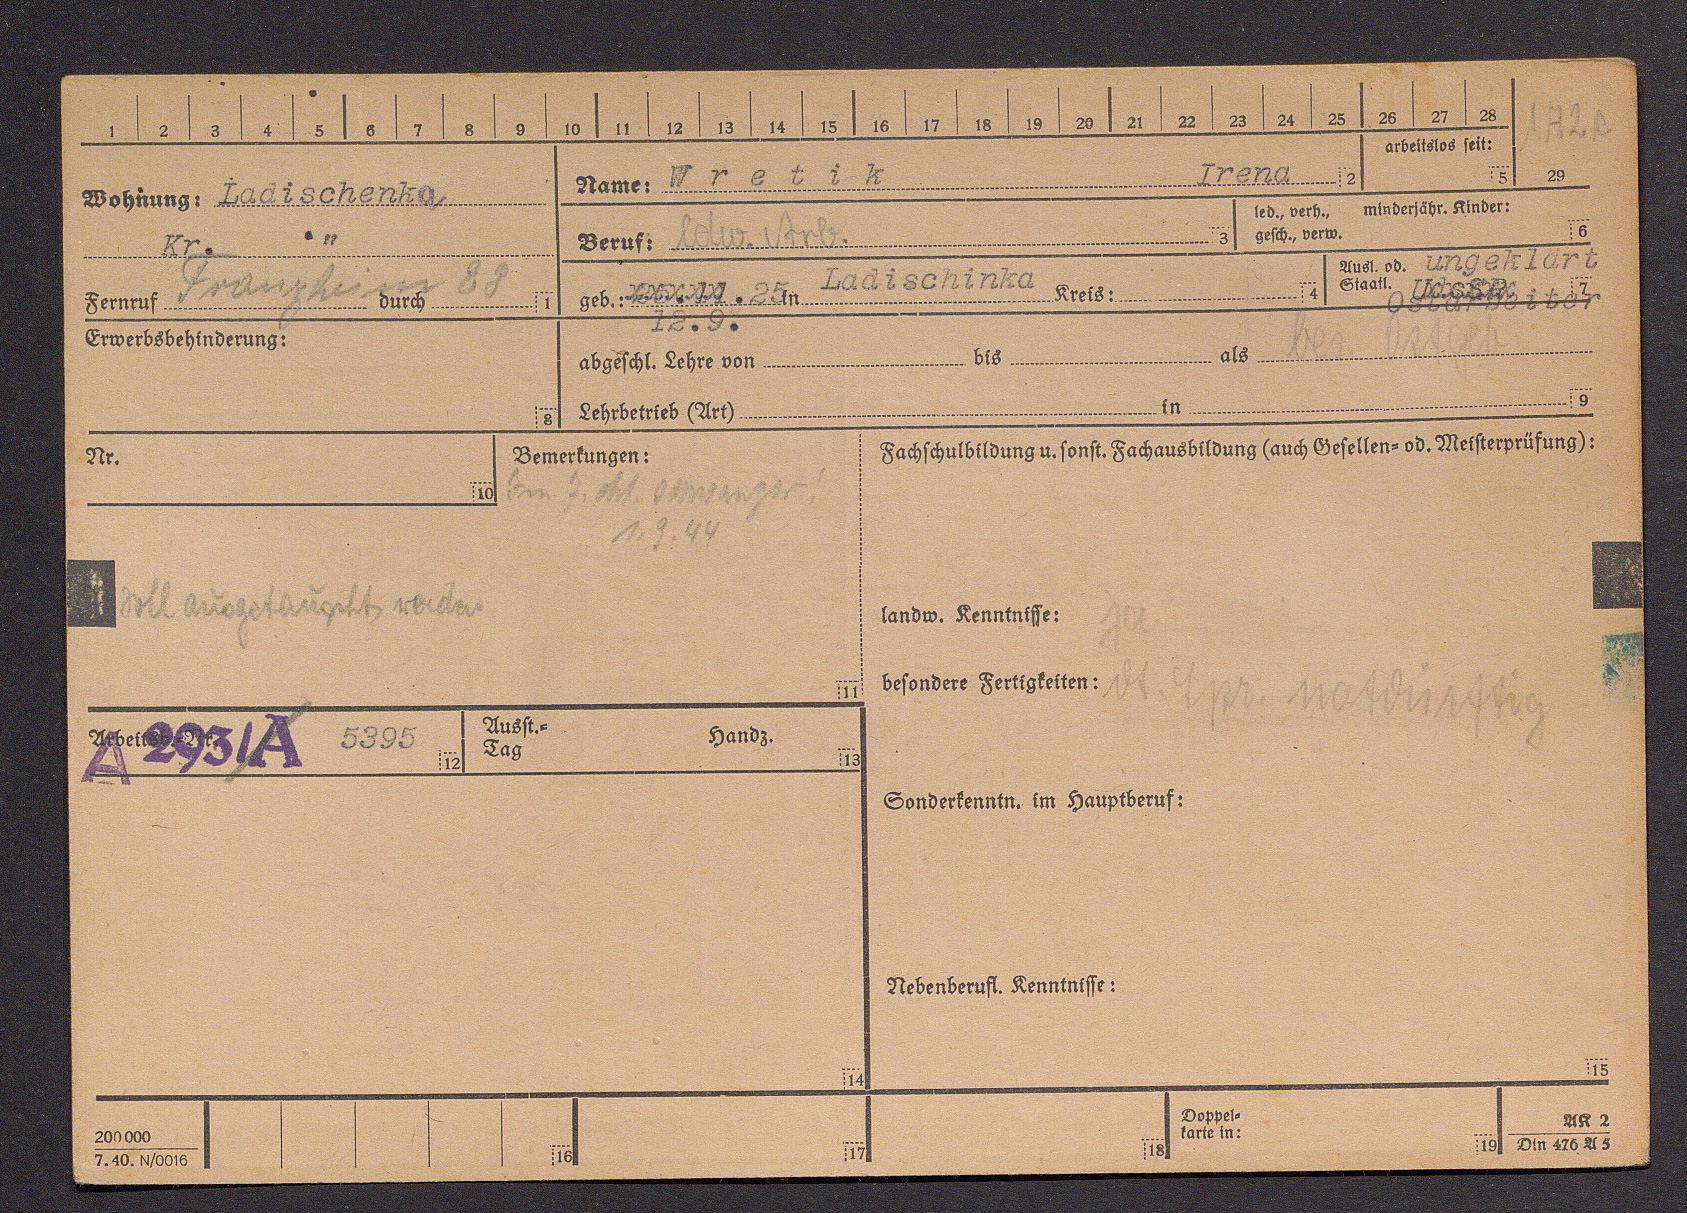 1 2 3 4 5 6 7 8 9 10 11 12 13 14 15 16 17 18 19 20 21 22 23 24 25 26 27 28
arbeitslos seit:
5 29
Wohnung: Ladischenka
Kr. "
Franzheim 88
Fernruf durch 1
Name: Wretik Irena 2
Beruf: ldw. Arb. 3
led., verh., minderjähr. Kinder:
gesch., verw. 6
geb.: 11.25 in Ladischinka Kreis: 4
12.9.
Ausl. od. ungeklärt
Staatl. UdSSR 7
Ostarbeiter
Erwerbsbehinderung:
8
abgeschl. Lehre von bis als
Lehrbetrieb (Art) in 9
Nr.
10
Bemerkungen:
Im 7. schwanger!
1.9.44
soll ausgetauscht werden
11
Fachschulbildung u. sonst. Fachausbildung (auch Gesellen= od. Meisterprüfung):
landw. Kenntnisse: ja
besondere Fertigkeiten: dt. Spr. notdürftig
Sonderkenntn. im Hauptberuf:
Nebenberufl. Kenntnisse:
15
Arbeitsb.-Nr. A 293/A 5395 12
Ausst.=
Tag Handz. 13
14
200000
7.40. N/0016
16 17 18
Doppel=
karte in: 19
AK 2
Din 476 A 5